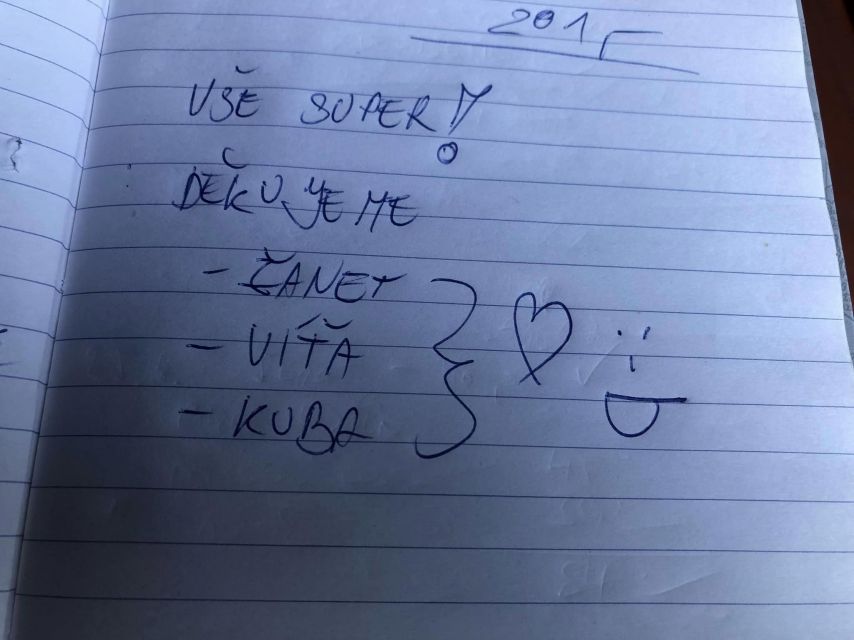 2015
VŠE SUPER!
DĚKUJEME
- ŽANET
- VÍŤA
- KUBA